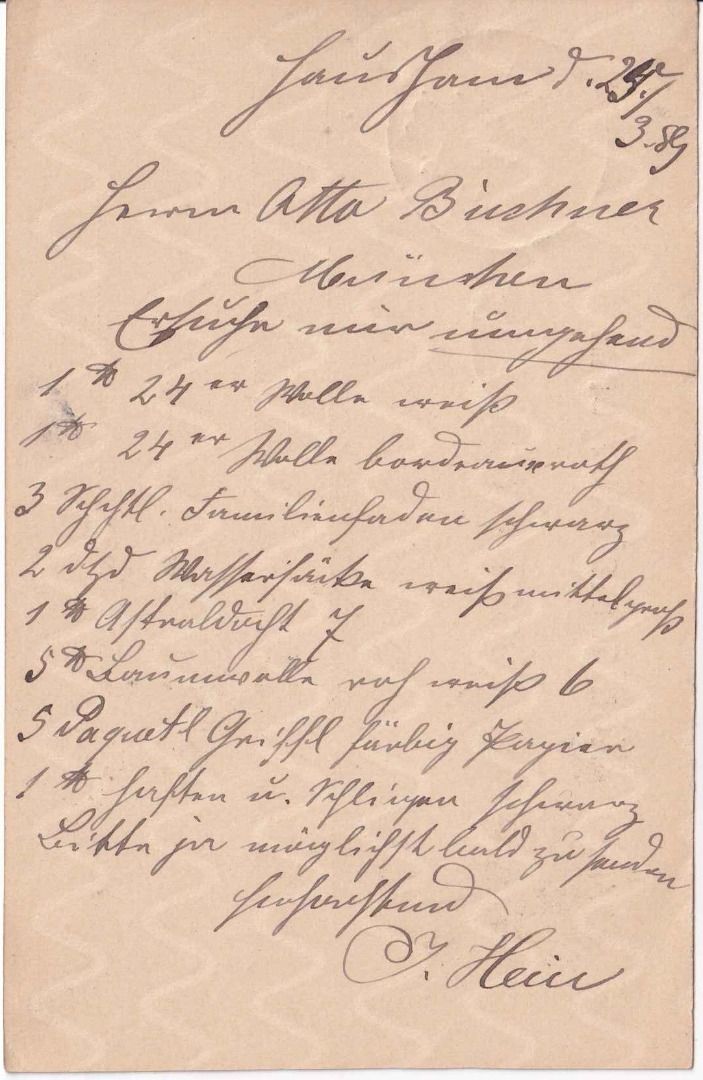 Hausham d. 24./
3.89
Herrn Otto Büchner
München
Ersuche mir umgehend
1 ℔ 24er Wolle weiß
1 ℔ 24er Wolle bordeauxroth
3 Schchtl. Familienfaden schwarz
2 dtzd weiß mittelgroß
1 ℔ Astraldocht 7
5 ℔ Baumwolle roh weiß 6
5 Paquetl Griffl färbig Papier
1 ℔ Haften u. Schlingen schwarz
Bitte ja möglichst bald zu senden
Hochachtend
J. Hein